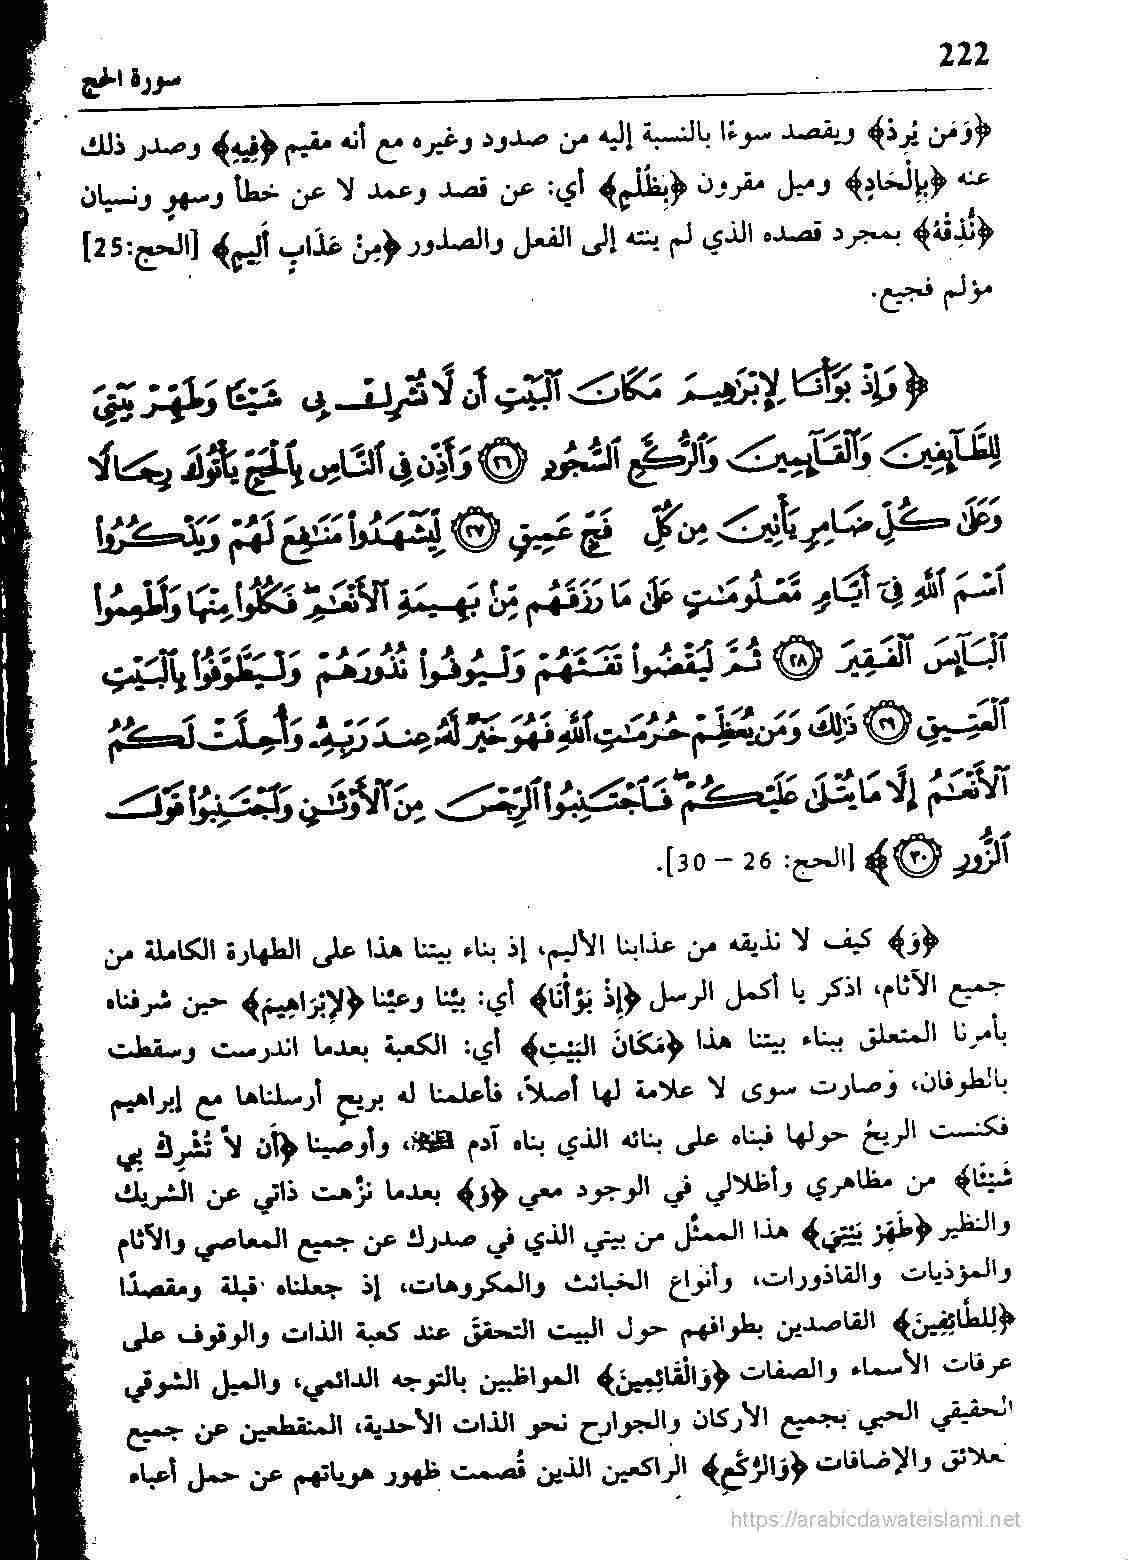 222
سورة الحج
﴿وَمَن يُرِدْ﴾ ويقصد سوءًا بالنسبة إليه من صدود وغيره مع أنه مقيم ﴿فِيهِ﴾ وصدر ذلك
عنه ﴿بِإِلْحَادٍ﴾ وميل مقرون ﴿بِظُلْمٍ﴾ أي: عن قصد وعمد لا عن خطأ وسهوٍ ونسيان
﴿نُّذِقْهُ﴾ بمجرد قصده الذي لم ينته إلى الفعل والصدور ﴿مِنْ عَذَابٍ أَلِيمٍ﴾ [الحج:25]
مؤلم فجيع.
﴿ وَإِذْ بَوَّأْنَا لِإِبْرَٰهِيمَ مَكَانَ ٱلْبَيْتِ أَن لَّا تُشْرِكْ بِى شَيْـًٔا وَطَهِّرْ بَيْتِىَ
لِلطَّآئِفِينَ وَٱلْقَآئِمِينَ وَٱلرُّكَّعِ ٱلسُّجُودِ ٢٦ وَأَذِّن فِى ٱلنَّاسِ بِٱلْحَجِّ يَأْتُوكَ رِجَالًا
وَعَلَىٰ كُلِّ ضَامِرٍ يَأْتِينَ مِن كُلِّ فَجٍّ عَمِيقٍ ٢٧ لِّيَشْهَدُوا۟ مَنَٰفِعَ لَهُمْ وَيَذْكُرُوا۟
ٱسْمَ ٱللَّهِ فِىٓ أَيَّامٍ مَّعْلُومَٰتٍ عَلَىٰ مَا رَزَقَهُم مِّنۢ بَهِيمَةِ ٱلْأَنْعَٰمِ ۖ فَكُلُوا۟ مِنْهَا وَأَطْعِمُوا۟
ٱلْبَآئِسَ ٱلْفَقِيرَ ٢٨ ثُمَّ لْيَقْضُوا۟ تَفَثَهُمْ وَلْيُوفُوا۟ نُذُورَهُمْ وَلْيَطَّوَّفُوا۟ بِٱلْبَيْتِ
ٱلْعَتِيقِ ٢٩ ذَٰلِكَ وَمَن يُعَظِّمْ حُرُمَٰتِ ٱللَّهِ فَهُوَ خَيْرٌ لَّهُۥ عِندَ رَبِّهِۦ ۗ وَأُحِلَّتْ لَكُمُ
ٱلْأَنْعَٰمُ إِلَّا مَا يُتْلَىٰ عَلَيْكُمْ ۖ فَٱجْتَنِبُوا۟ ٱلرِّجْسَ مِنَ ٱلْأَوْثَٰنِ وَٱجْتَنِبُوا۟ قَوْلَ
ٱلزُّورِ ٣٠ ﴾ [الحج: 26 – 30].
﴿وَ﴾ كيف لا نذيقه من عذابنا الأليم، إذ بناء بيتنا هذا على الطهارة الكاملة من
جميع الآثام، اذكر يا أكمل الرسل ﴿إِذْ بَوَّأْنَا﴾ أي: بيَّنا وعيَّنا ﴿لإِبْرَاهِيمَ﴾ حين شرفناه
بأمرنا المتعلق ببناء بيتنا هذا ﴿مَكَانَ البَيْتِ﴾ أي: الكعبة بعدما اندرست وسقطت
بالطوفان، وصارت سوى لا علامة لها أصلاً، فأعلمنا له بريحٍ أرسلناها مع إبراهيم
فكنست الريحُ حولها فبناه على بنائه الذي بناه آدم ، وأوصينا ﴿أَن لاَّ تُشْرِكْ بِي
شَيْئًا﴾ من مظاهري وأظلالي في الوجود معي ﴿وَ﴾ بعدما نزَّهت ذاتي عن الشريك
والنظير ﴿طَهِّرْ بَيْتِيَ﴾ هذا الممثَّل من بيتي الذي في صدرك عن جميع المعاصي والآثام
والمؤذيات والقاذورات، وأنواع الخبائث والمكروهات، إذ جعلناه قبلة ومقصدًا
﴿لِلطَّائِفِينَ﴾ القاصدين بطوافهم حول البيت التحققَ عند كعبة الذات والوقوف على
عرفات الأسماء والصفات ﴿وَالْقَائِمِينَ﴾ المواظبين بالتوجه الدائمي، والميل الشوقي
الحقيقي الحبي بجميع الأركان والجوارح نحو الذات الأحدية، المنقطعين عن جميع
لعلائق والإضافات ﴿وَالرُّكَّعِ﴾ الراكعين الذين قُصمت ظهور هوياتهم عن حمل أعباء
https://arabicdawateislami.net